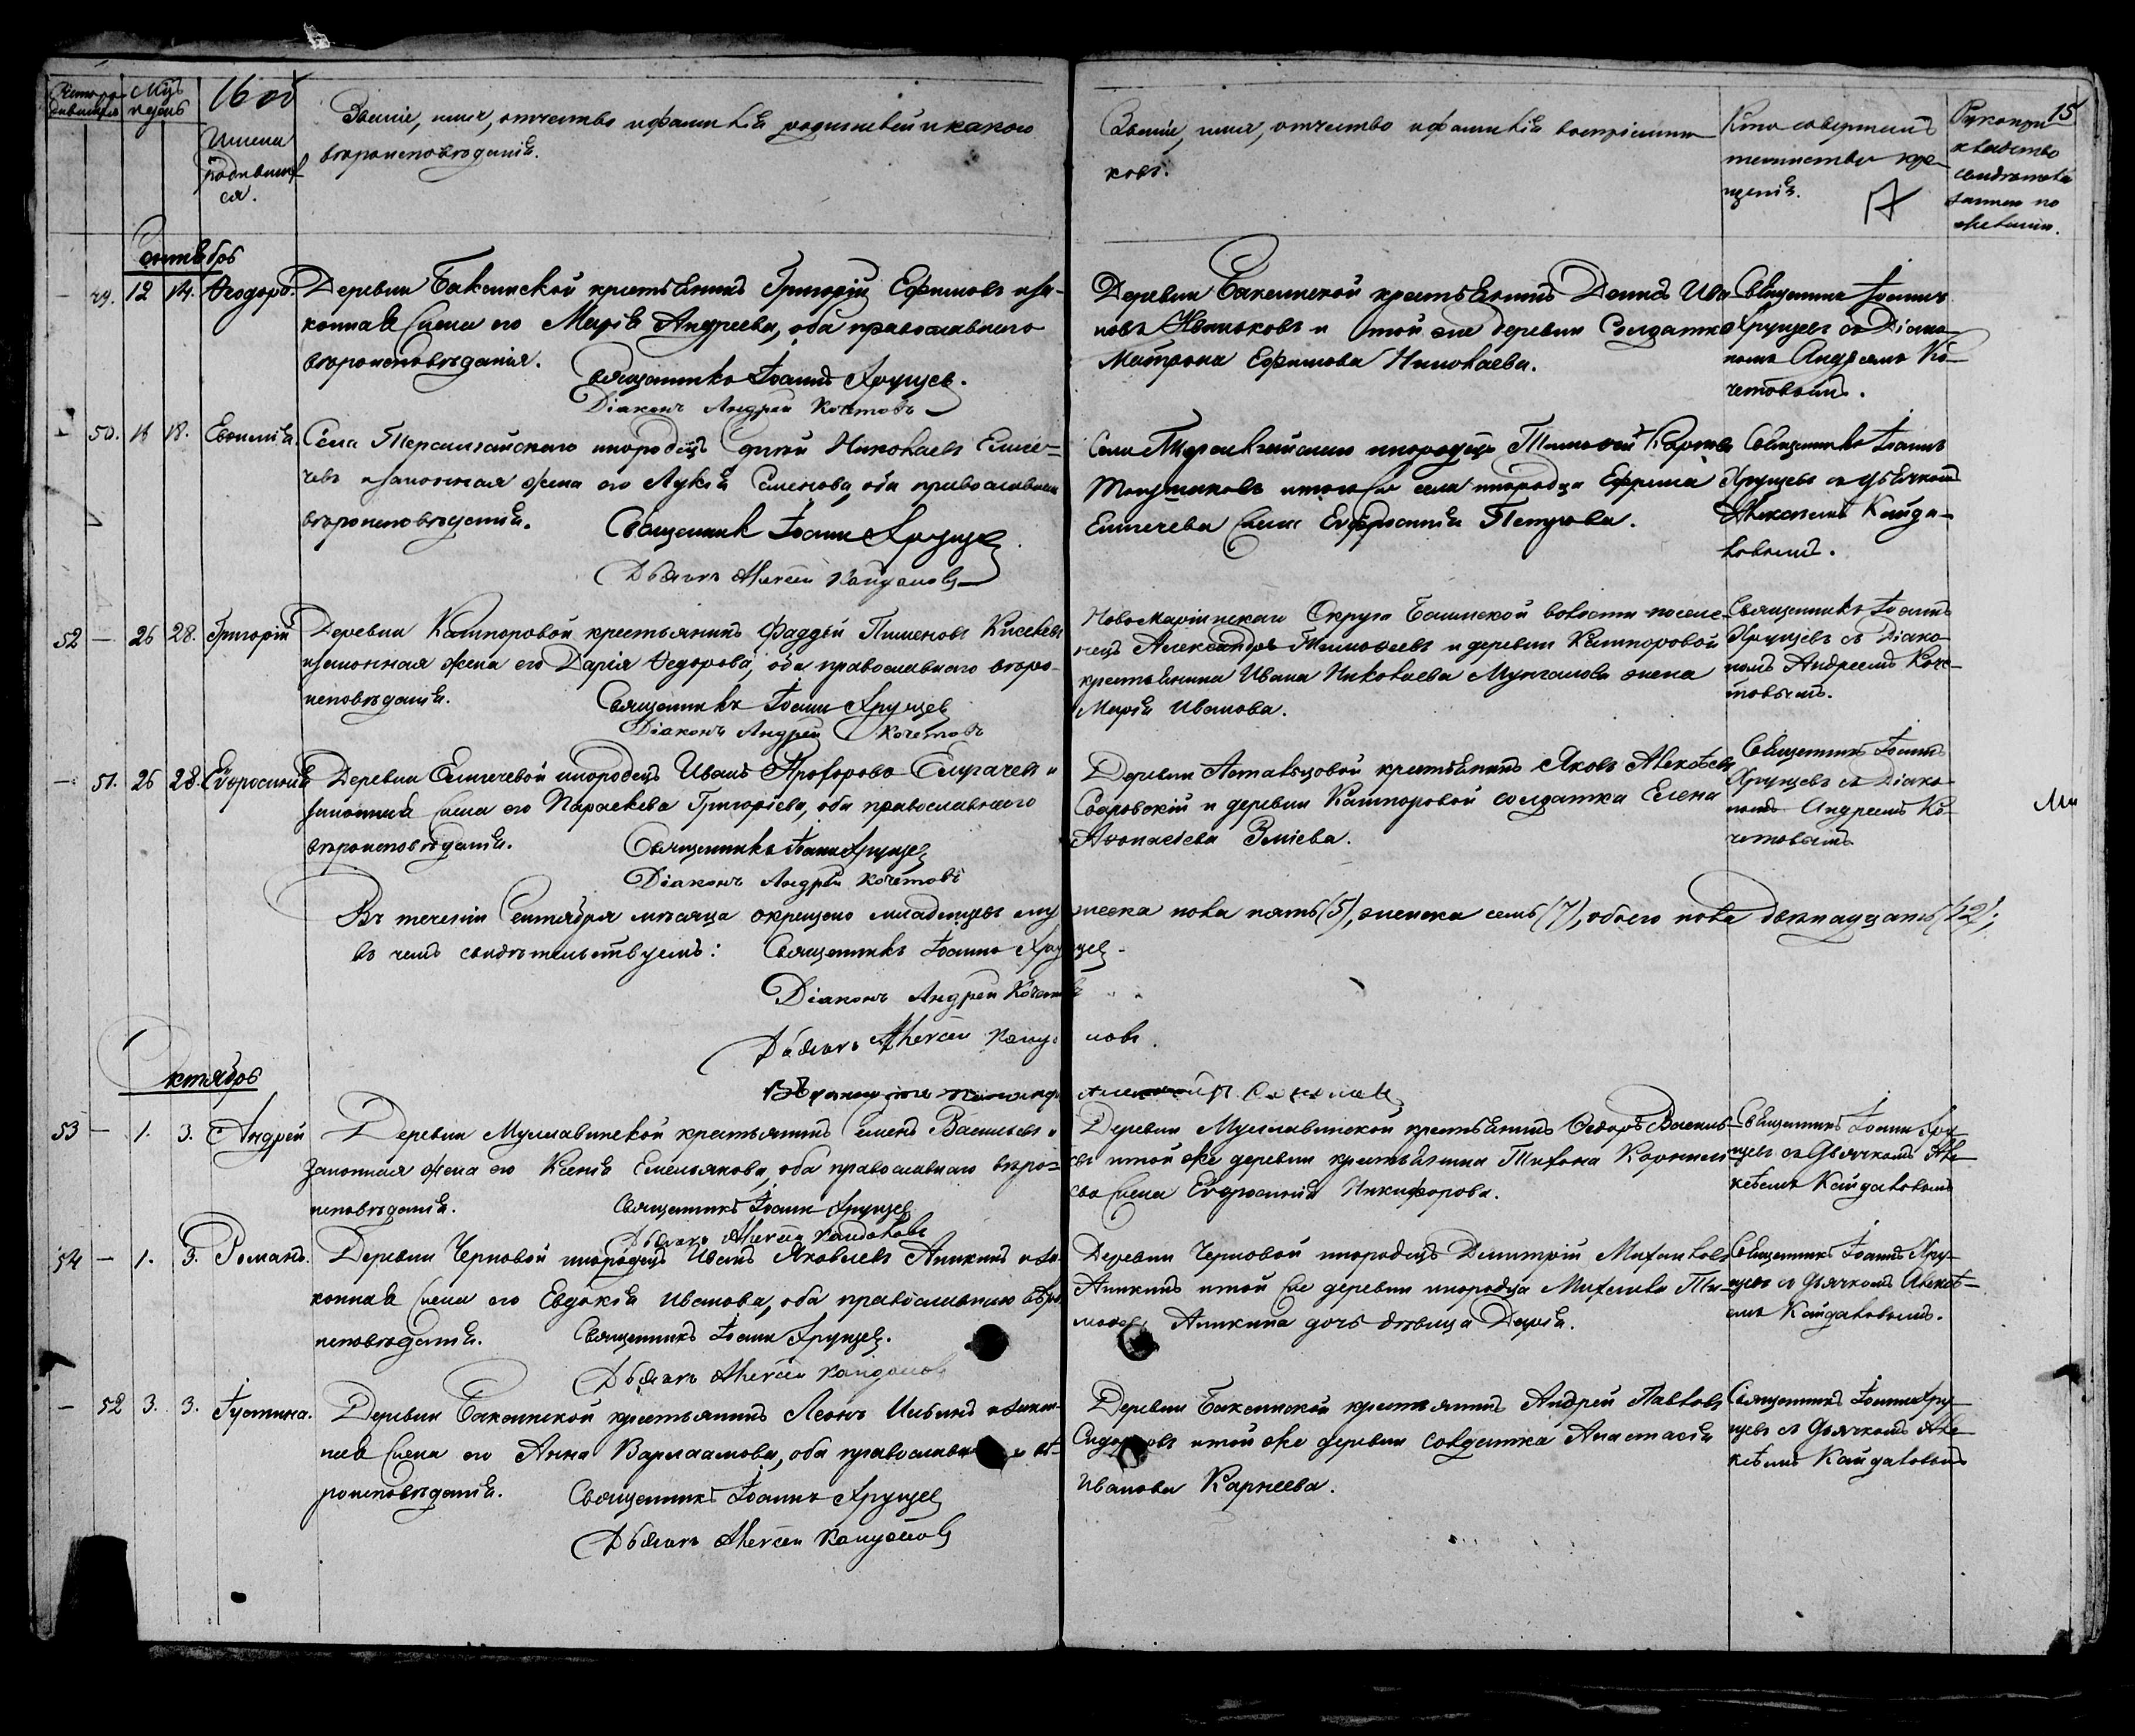 16 об
15
Мцъ
и день
Имена
родивших
ся.
Званіе, имя, отчество и фамилія родителей и какого
вѣроисповѣданія.
Званіе, имя, отчество и фамилія воспріемни
ковъ.
Кто совершалъ
таинство кре
щенія.
Рукоприк
ладство
свидѣтелей
записи по
желанію.
Сентябрь
49. 12 14. Ѳеодора. Деревни Баксинской крестьянинъ Григорій Ефимовъ и за-
конная жена его Марія Андреева, оба православнаго
вѣроисповѣданія.
Священникъ Іоаннъ Хрущев.
Діаконъ Андрей Кочетовъ
Деревни Баксинской крестьянинъ Демидъ Ива
новъ и той же деревни Солдатка
Матрона Ефимова Николаева.
Священникъ Іоаннъ
Хрущевъ съ Діако-
номъ Андреемъ Ко-
четовымъ.
50. 16 18. Евѳимія. Села инородецъ Николаевъ
и законная жена его Лукія Семенова, оба православнаго
вѣроисповѣданія.
Священник Іоанн Хрущев
Дьячекъ Алексей Кайдаловъ
Села инородецъ Тимоѳей
и того же села инородца Ефрема
жена Евфросинія Петрова.
Священникъ Іоаннъ
Хрущевъ съ дьячкомъ
Алексѣемъ Кайда-
ловымъ.
52 — 26 28. Григорій Деревни Кашпоровой крестьянинъ Фаддѣй Пименовъ Киселевъ
и законная жена его Дарія Ѳедорова, оба православнаго вѣро-
исповѣданія.
Священникъ Іоанн Хрущев
Діаконъ Андрей Кочетовъ
Ново Маріинскаго Округа Баимской волости поселе-
нецъ Александръ Тимоѳеевъ и деревни Кашпоровой
крестьянина Ивана Николаева Мунгалова жена
Марія Иванова.
Священникъ Іоаннъ
Хрущевъ съ Діако-
номъ Андреемъ Коче-
товымъ.
— 51. 26 28. Евфросинія Деревни Елгачевой инородецъ Иванъ Прохоровъ Елгачевъ и
законная жена его Параскева Григоріева, оба православнаго
вѣроисповѣданія.
Священникъ Іоанн Хрущев
Діаконъ Андрей Кочетовъ
Деревни Асталоцовой крестьянинъ Яковъ Алексѣевъ
и деревни Кашпоровой солдатка Елена
Аѳонасіева Зміева.
Священникъ Іоаннъ
Хрущевъ съ Діако-
номъ Андреемъ Ко-
четовымъ
Въ теченіи Сентября мѣсяца окрещено младенцевъ мужеска пола пять (5), женска семь (7), обоего пола двѣнадцать (12);
въ чемъ свидѣтельствуемъ: Священникъ Іоаннъ Хрущев
Діаконъ Андрей Кочетовъ
Дьячекъ Алексей Кайдаловъ.
Октябрь
53 — 1. 3. Андрей Деревни Муллавинской крестьянинъ Семенъ Васильевъ и
законная жена его Ксенія Емельянова, оба православнаго вѣро-
исповѣданія.
Священникъ Іоанн Хрущев
Дьячекъ Алексей Кайдаловъ
Деревни Муллавинской крестьянинъ Ѳедоръ Василь-
евъ и той же деревни крестьянина Тихона Корнило-
ва жена Евфросинія Никифорова.
Священникъ Іоаннъ Хру-
щевъ съ Дьячкомъ Але-
ксѣемъ Кайдаловымъ
54 — 1. 3. Романъ. Деревни Черновой инородецъ Иванъ Яковлевъ Аникинъ и за-
конная жена его Евдокія Иванова, оба православнаго вѣро-
исповѣданія.
Священникъ Іоанн Хрущев.
Дьячекъ Алексей Кайдаловъ
Деревни Черновой инородецъ Димитрій Михайловъ
Аникинъ и той же деревни инородца Михаила Ти-
моѳеева Аникина дочь дѣвица Дарія.
Священникъ Іоаннъ Хру-
щевъ съ Дьячкомъ Алексѣ-
емъ Кайдаловымъ.
— 52 3. 3. Іустина. Деревни Баксинской крестьянинъ Леонъ Ильинъ и закон-
ная жена его Анна Варлаамова, оба православнаго вѣ-
роисповѣданія.
Священникъ Іоаннъ Хрущев
Дьячекъ Алексей Кайдаловъ
Деревни Баксинской крестьянинъ Андрей Павловъ
Сидоровъ и той же деревни солдатка Анастасія
Иванова Карнеева.
Священникъ Іоаннъ Хру-
щевъ съ Дьячкомъ Але-
ксѣемъ Кайдаловымъ